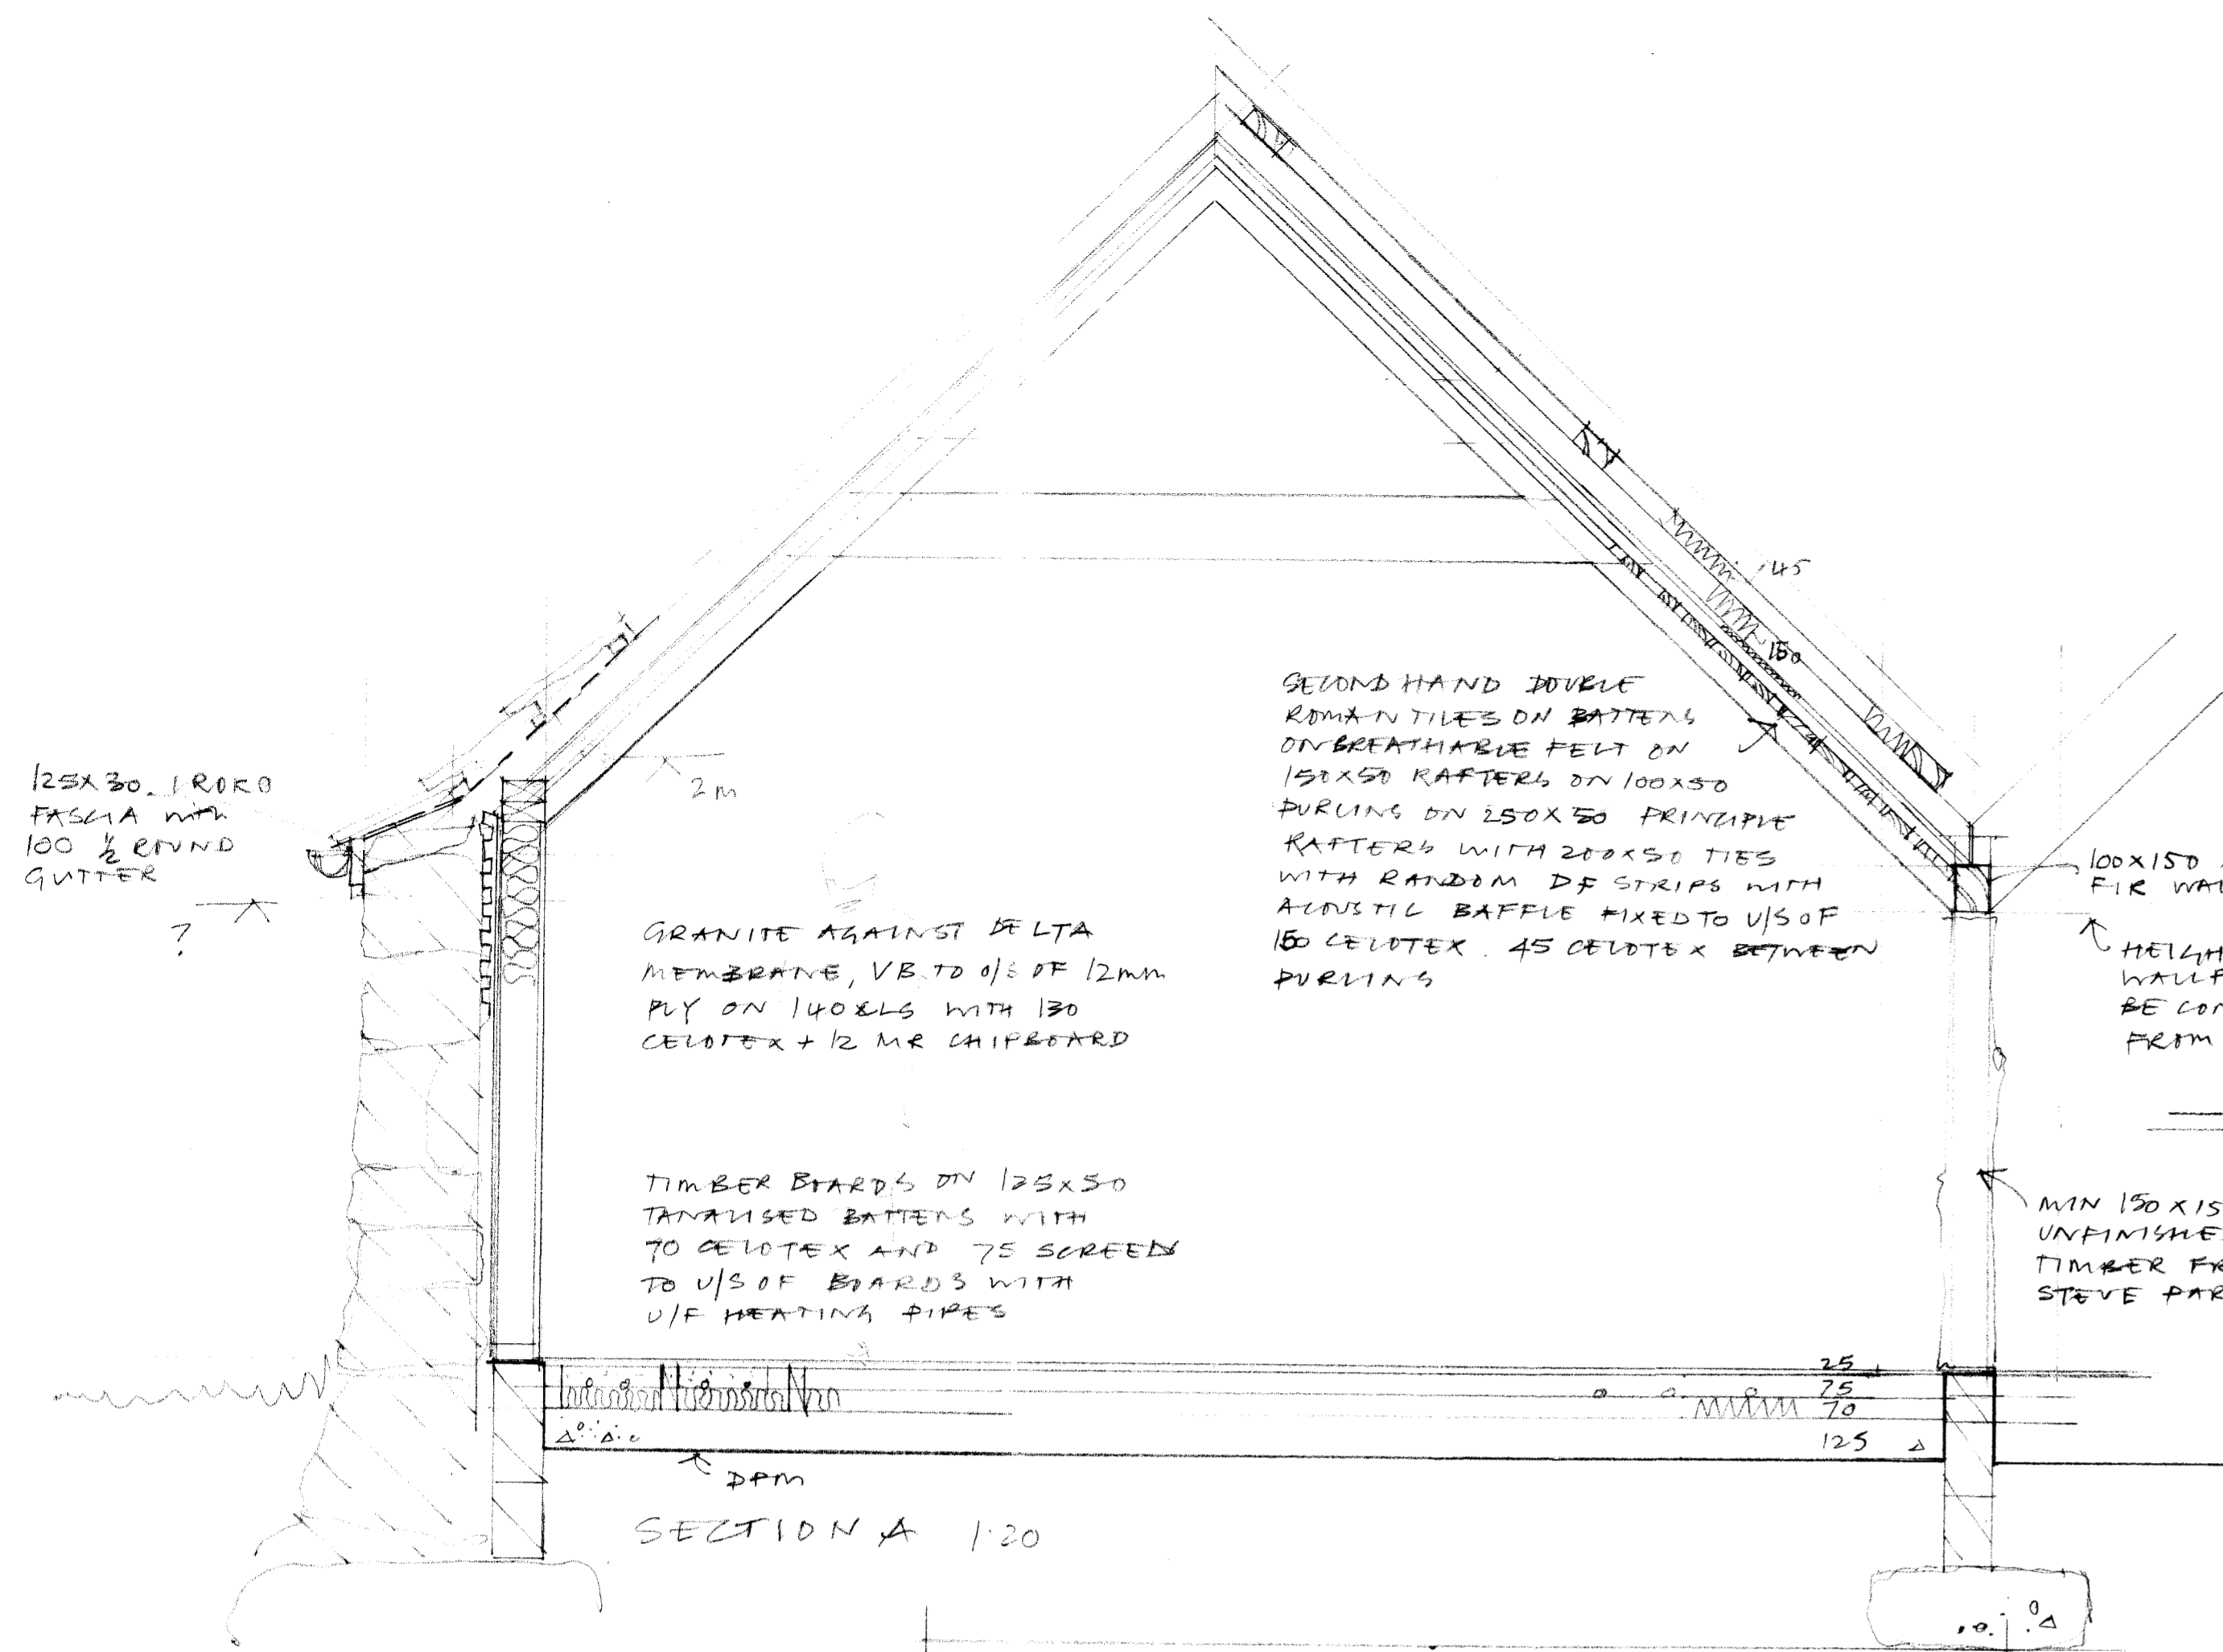 125X30. IROKO
FASCIA with
100 ½ ROUND
GUTTER
?
2m
45
150
SECOND HAND DOUBLE
ROMAN TILES ON BATTENS
ON BREATHABLE FELT ON
150X50 RAFTERS ON 100X50
PURLINS ON 250X50 PRINCIPLE
RAFTERS WITH 200X50 TIES
WITH RANDOM DF STRIPS WITH
ACOUSTIC BAFFLE FIXED TO U/S OF
150 CELOTEX. 45 CELOTEX BETWEEN
PURLINS
GRANITE AGAINST DELTA
MEMBRANE, VB TO O/S OF 12mm
PLY ON 140 CLS WITH 130
CELOTEX + 12 MR CHIPBOARD
100X150
FIR WAL
HEIGH
WALLP
BE CON
FROM
TIMBER BOARDS ON 125X50
TANALISED BATTENS WITH
70 CELOTEX AND 75 SCREED
TO U/S OF BOARDS WITH
U/F HEATING PIPES
MIN 150X15
UNFINISHE
TIMBER FR
STEVE PAR
25
75
70
125
DPM
SECTION A 1:20